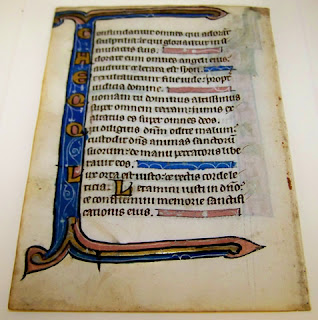 Confundantur omnes qui adorant
sculptilia: et qui gloriantur in si
mulacris suis.
Adorate eum omnes angeli eius:
audivit et letata est syon.
Et exultaverunt filie iude: propt
iudicia domine.
Quoniam tu dominus altissimus
super omnem terram: nimis ex
altatus es super omnes deos.
Qui diligitis dnm odite malum:
custodit dns animas sanctorum
suorum: de manu peccatoris libe
ravit eos.
Lux orta est iusto: et rectis corde le
ticia. Letamini iusti in dno:
et confitemini memorie sanctifi
cationis eius.